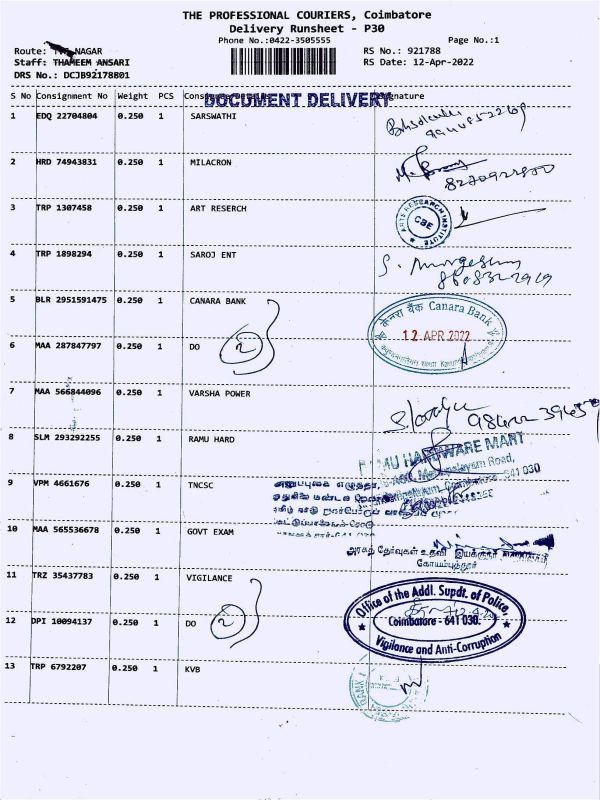 THE PROFESSIONAL COURIERS, Coimbatore
Delivery Runsheet - P30
Phone No.:0422-3505555 Page No.:1
Route: NAGAR RS No.: 921788
Staff: THAMEEM ANSARI RS Date: 12-Apr-2022
DRS No.: DCJB92178801
S No Consignment No Weight PCS Signature
DOCUMENT DELIVERY
1 EDQ 22704804 0.250 1 SARSWATHI
2 HRD 74943831 0.250 1 MILACRON
3 TRP 1307458 0.250 1 ART RESERCH
ARTS RESEARCH INSTITUTE
CBE
4 TRP 1898294 0.250 1 SAROJ ENT
S. Murgesan
5 BLR 2951591475 0.250 1 CANARA BANK
केनरा बैंक Canara Bank
12 APR 2022
6 MAA 287847797 0.250 1 DO 2
7 MAA 566844096 0.250 1 VARSHA POWER
8 SLM 293292255 0.250 1 RAMU HARD
MU HARDWARE MART
Road,
Coimbatore-641 030
9 VPM 4661676 0.250 1 TNCSC
10 MAA 565536678 0.250 1 GOVT EXAM
அரசுத் தேர்வுகள் உதவி இயக்குநர்
கோயம்புத்தூர்
11 TRZ 35437783 0.250 1 VIGILANCE
Office of the Addl. Supdt. of Police,
Coimbatore - 641 030.
Vigilance and Anti-Corruption
12 DPI 10094137 0.250 1 DO 2
13 TRP 6792207 0.250 1 KVB